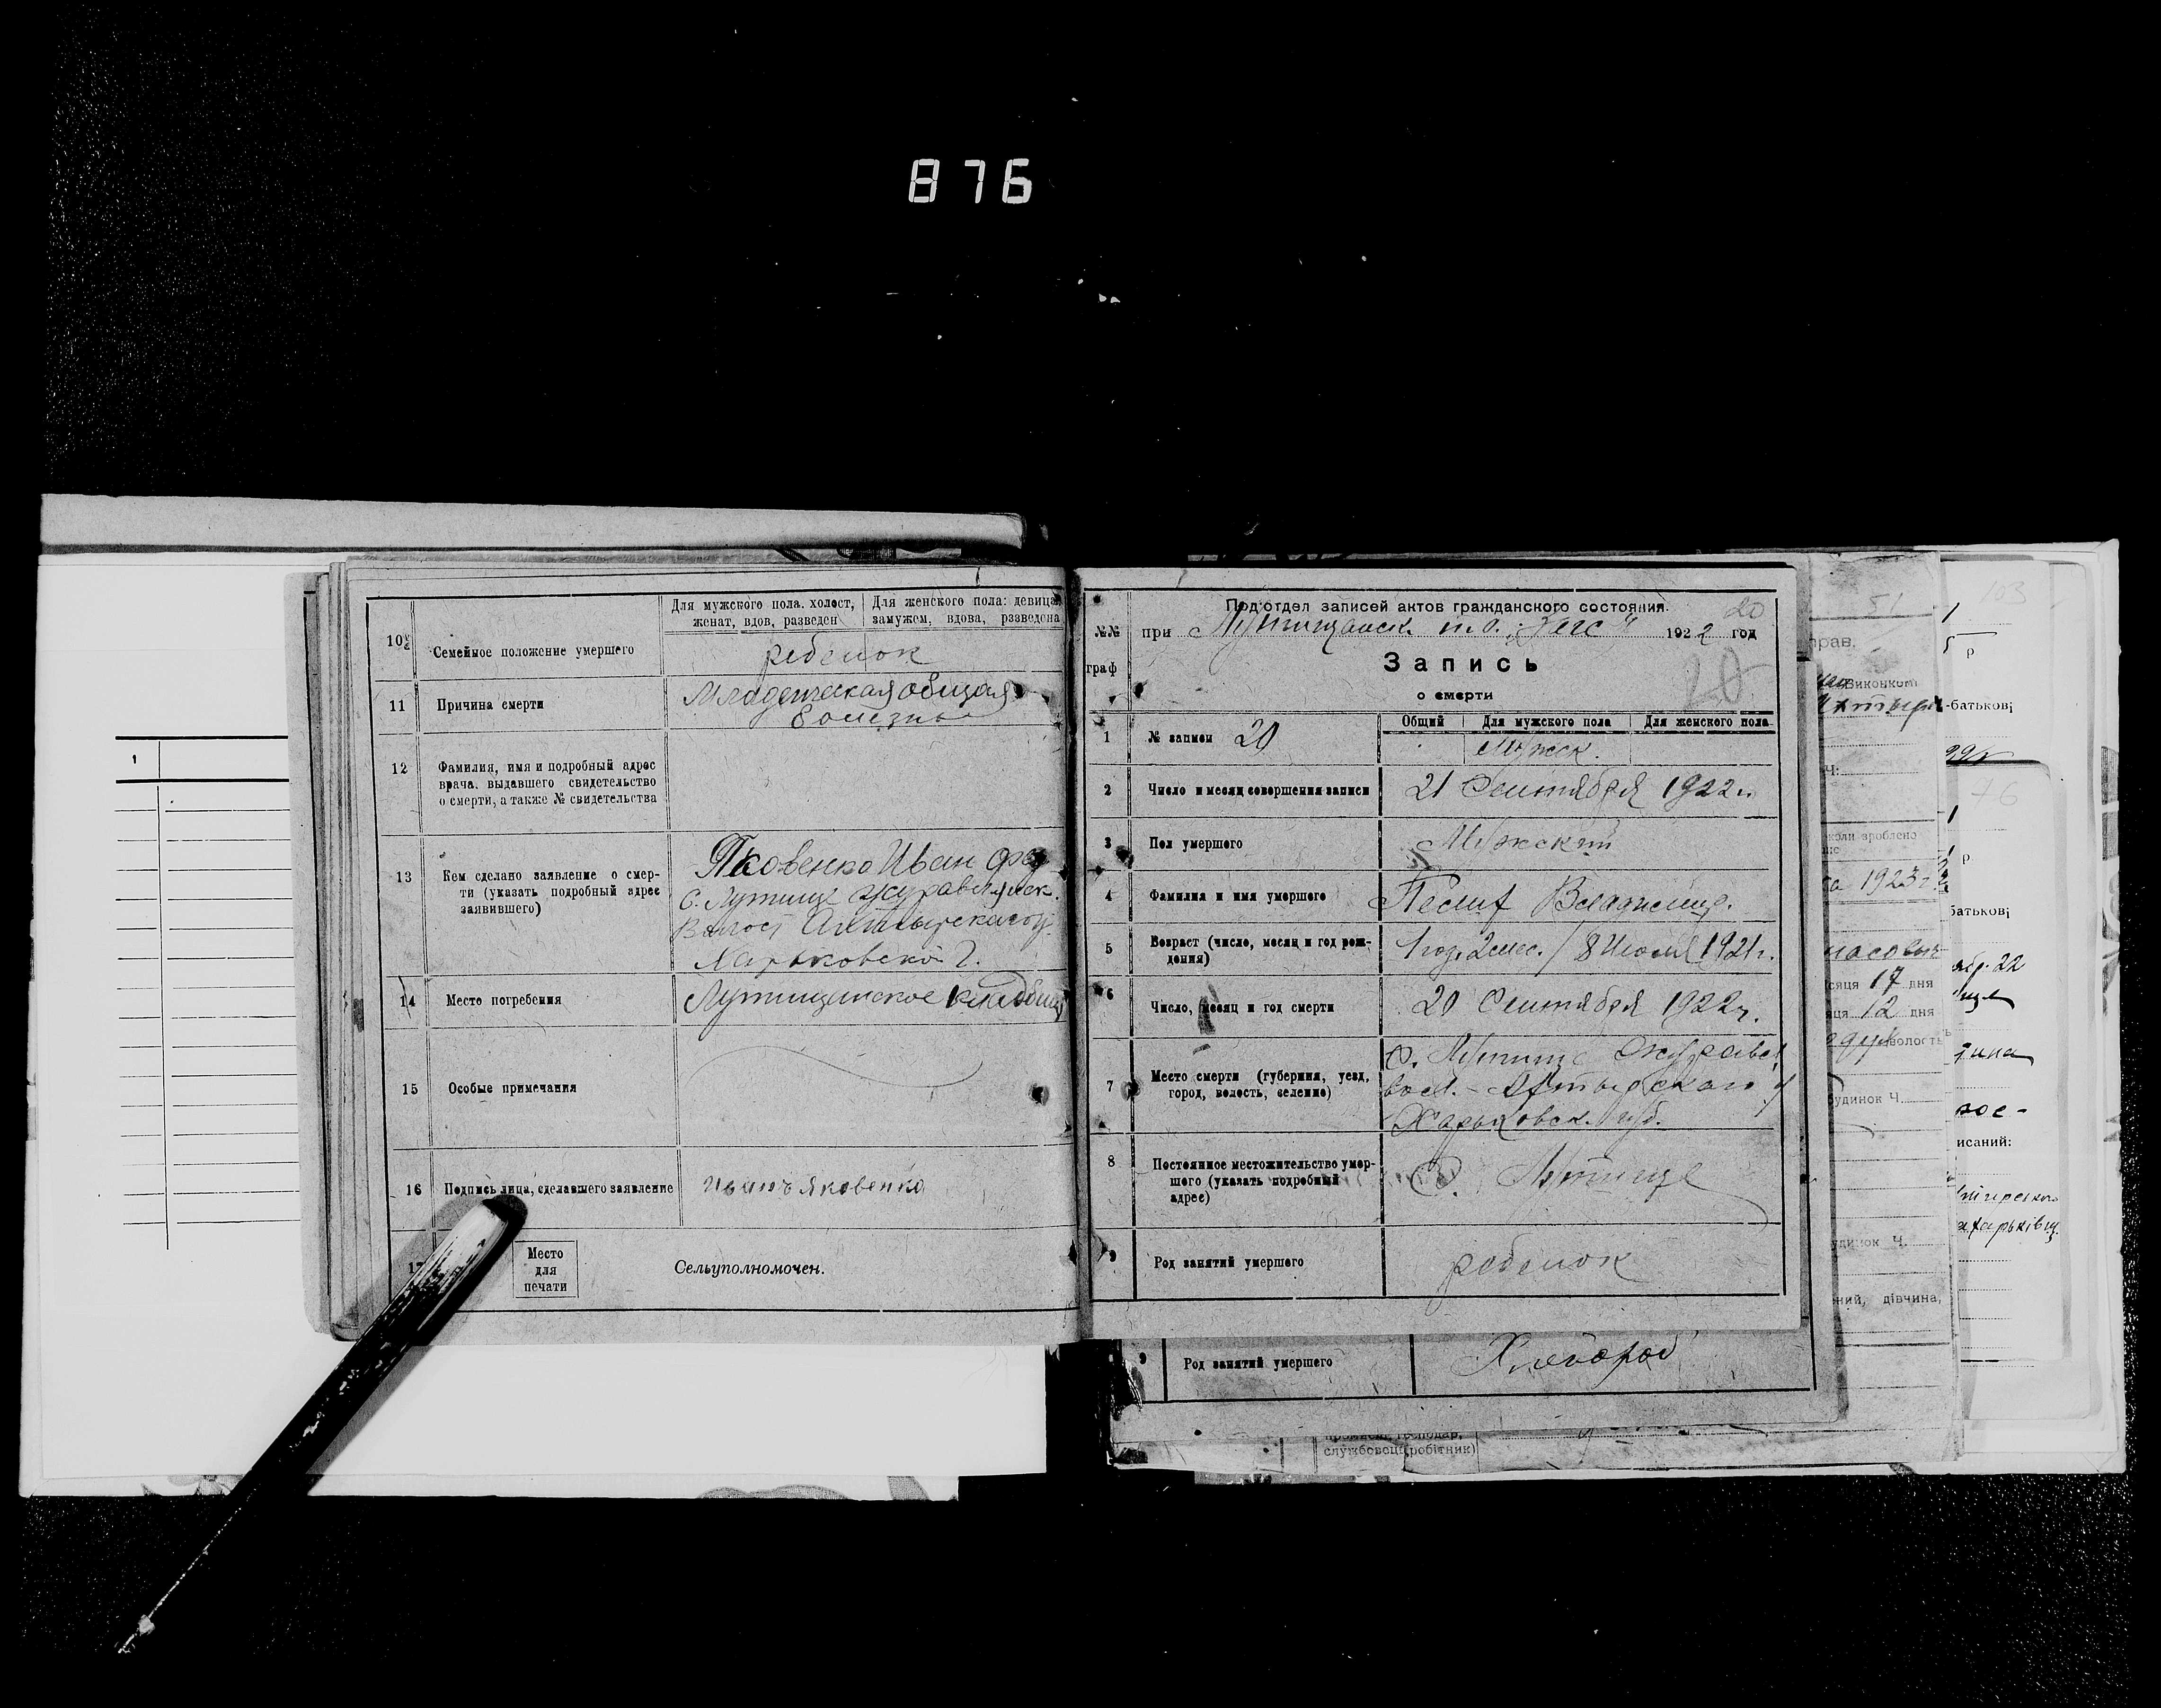 876
Для мужского пола. холост, женат, вдов, разведен
Для женского пола: девица, замужем, вдова, рззведена
10
Семейное положение умершего
ребенок
11
Причина смерти
Младенческая общая
болезнь
12
Фамилия, имя и подробный адрес
врача, выдавшего свидетельство
о смерти, а также № свидетельства
13
Кем сделано заявление о смер-
ти (указать подробный адрес
заявившего)
Яковенко Иван Фед
С. Лутище Журавлянск.
Волост Ахтырскаго у.
Харьковской г.
14
Место погребения
Лутищанское кладбище
15
Особые примечания
16
Подпись лица, сделавшего заявление
Иванъ Яковенко
17
Место
для
печати
Сельуполномочен.
Под'отдел записей актов гражданского состояния.
20
№№
граф
при Лутищанск. 1922 год
Запись
о смерти
20
1
№ записи 20
Общий
Для мужского пола
Для женского пола
Мужск.
2
Число и месяц совершения записи
21 Сентября 1922 г.
3
Пол умершого
Мужский
4
Фамилия и имя умершего
5
Возраст (число, месяц и год рож-
дения)
1 год. 2 мес. / 8 Июля 1921 г.
6
Число, месяц и год смерти
20 Сентября 1922 г.
7
Место смерти (губерния, уезд,
город, волость, селение)
С. Лутище Журавл
вол. Ахтырскаго у
Харьковск. губ.
8
Постоянное местожительство умер-
шого (указать подробный
адрес)
С. Лутище
9
Род занятий умершего
ребенок
9
Род занятий умершего
Хлебороб
службовець, робітник)
51
прав.
Виконком
Ч:
коли зроблено
1923 г.
сяця 17 дня
яця 12 дня
волость
будинок Ч.
удинок Ч.
ний, дівчина,
103
р
-батькові
76
р
батькові
22
исаний:
1